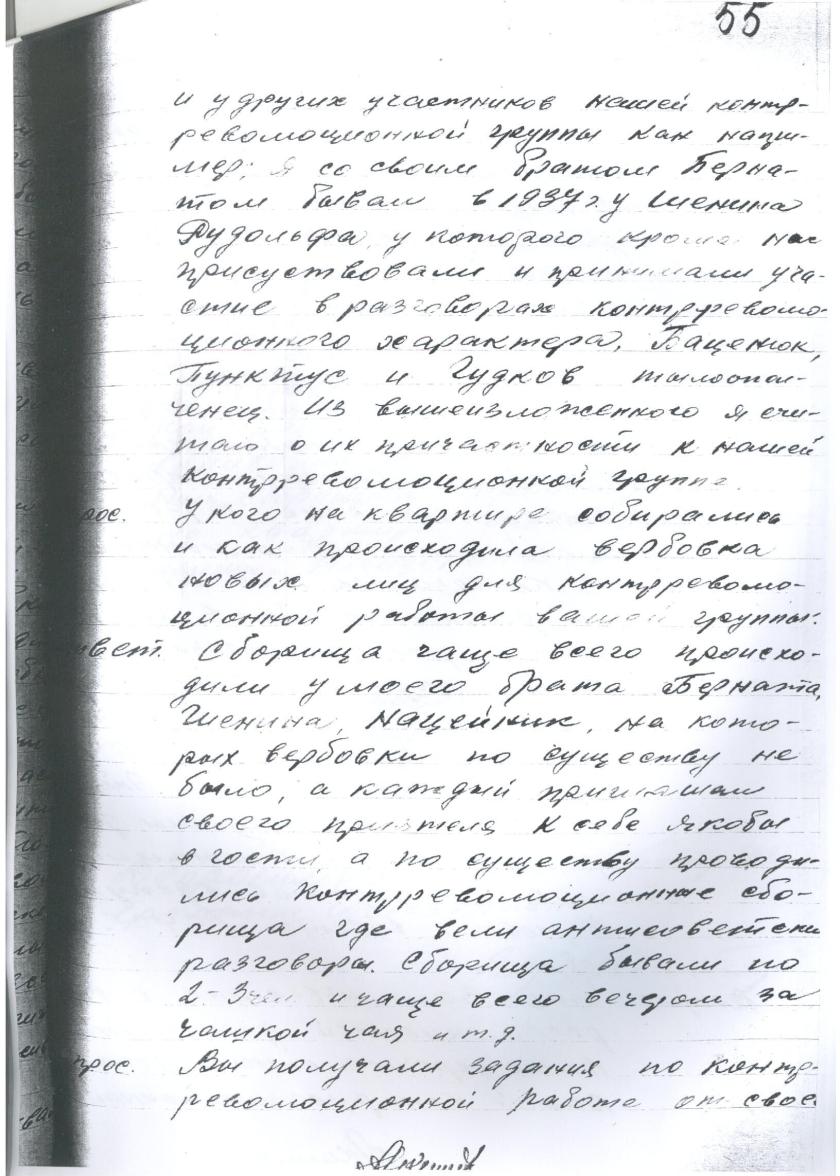 55
и у других участников нашей контр-
революционной группы как напри-
мер; я со своим братом Берна-
том бывал в 1937 г. у Шенина
Рудольфа, у которого кроме нас
присуствовали и принимали уча-
стие в разговорах контрреволю-
ционного характера, Баценюк,
Пунктус и Гудков тылоопол-
ченец. Из вышеизложенного я счи-
таю о их причастности к нашей
контрреволюционной группе.
рос. У кого на квартире собирались
и как происходила вербовка
новых лиц для контрреволю-
ционной работы вашей группы.
твет. Сборища чаще всего происхо-
дили у моего брата Берната,
Шенина, Нацейник, на кото-
рых вербовки по существу не
было, а каждый приглашал
своего приятеля к себе якобы
в гости, а по существу проводи-
лись контрреволюционные сбо-
рища где вели антисоветски
разговоры. Сборища бывали по
2-3 чел. и чаще всего вечером за
чашкой чая и т.д.
прос. Вы получали задания по контр-
революционной работе от свое